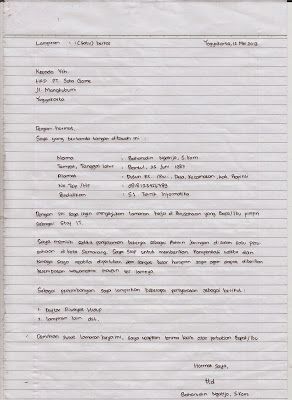 Lampiran : 1 (Satu) berkas Yogyakarta, 12 Mei 2013
Kepada Yth.
HRD PT. Sata Game
Jl. Mangkubumi
Yogyakarta
Dengan hormat,
Saya yang bertanda tangan dibawah ini :
Nama : Baharudin S.Kom
Tempat, Tanggal Lahir : Bantul, 25 Juni 1987
Alamat : Dusun RT. /Rw. , Desa, Kecamatan, Kab, Provinsi
No Tlp /HP :
Pendidikan : S1. Teknik Informatika.
Dengan ini saya ingin mengajukan lamaran kerja di Perusahaan yang Bapak/Ibu pimpin
sebagai Staf IT.
Saya memiliki sedikit pengalaman bekerja sebagai Admin Jaringan di salah satu peru-
sahaan di kota Semarang. Saya siap untuk memberikan
tenaga saya apabila diperlukan dan sangat besar harapan saya agar dapat diberikan
kesempatan wawancara maupun tes lainnya.
Sebagai pertimbangan saya lampirkan beberapa persyaratan sebagai berikut :
1. Daftar Riwayat Hidup
2. lampiran lain dst.
Demikian surat lamaran kerja ini, saya ucapkan terima kasih atas perhatian Bapak/Ibu
Hormat Saya,
ttd
Baharudin S.Kom